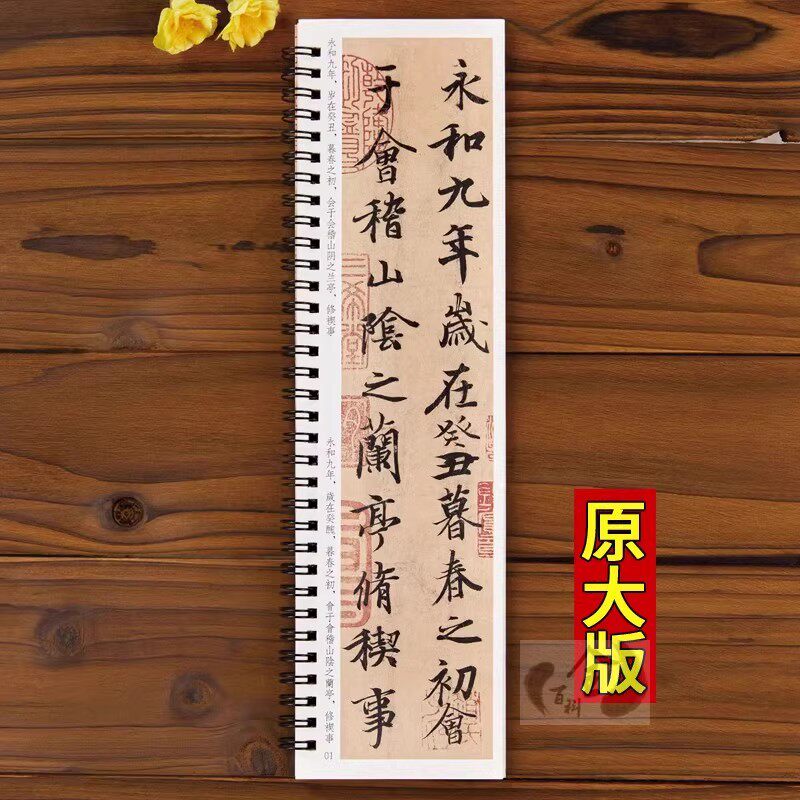 永和九年歲在癸丑暮春之初會
于會稽山陰之蘭亭脩稧事
永和九年，岁在癸丑，暮春之初，会于会稽山阴之兰亭，修禊事
永和九年，歲在癸醜，暮春之初，會于會稽山陰之蘭亭，修禊事
01
原大版
百科